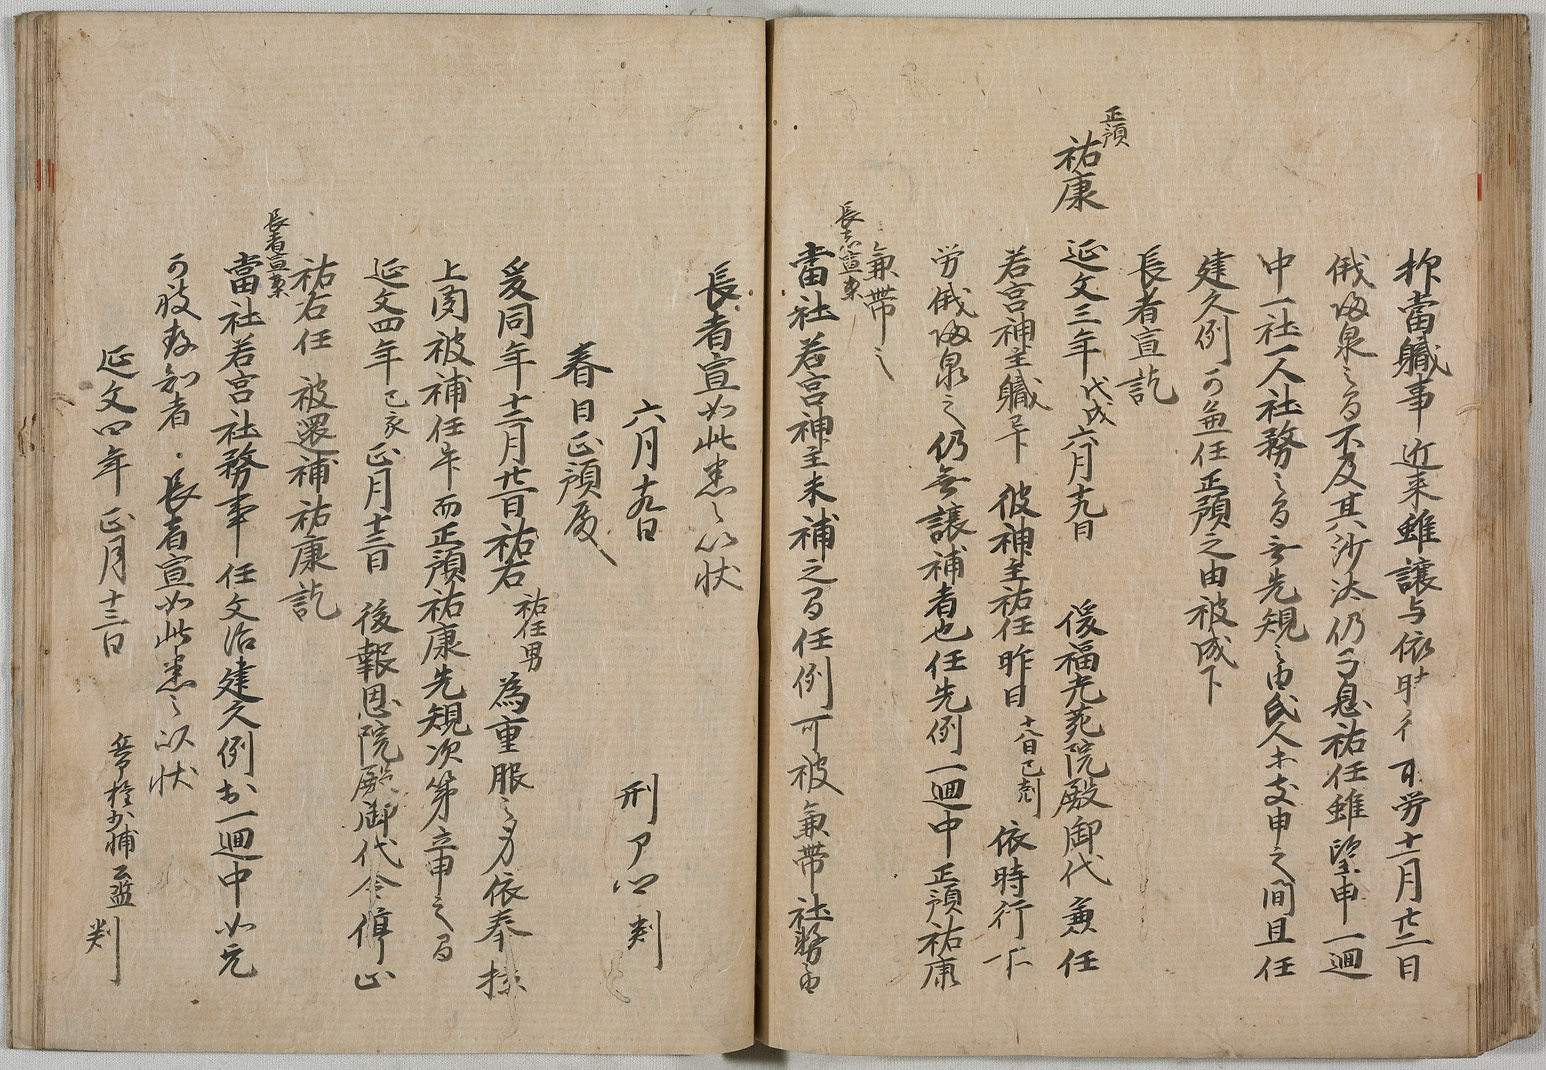 抑當職事近来雖譲与依時行百労十一月廿二日
俄帰泉之間不及其沙汰仍子息祐任雖望申一廻
中一社一人社務之間云先規之由氏人等支申之間且任
建久例可兼任正預之由被成下
長者宣訖
正預
祐康 延文三年戊戌六月十九日 後福光苑院殿御代兼任
若宮神主職畢 彼神主祐任昨日十八日巳剋依時行所
労俄帰泉之仍無譲補者也任先例一廻中正預祐康
兼帯之
長者宣案
當社若宮神主未補之間任例可被兼帯社務由
長者宣如此悉之以状
六月十九日 刑部 判
春日正預殿
爰同年十二月廿一日祐右祐任男為重服之身依奉掠
上聞被補任畢而正預祐康先規次第立申之間
延文四年己亥正月十三日 後報恩院殿御代令停止
祐右任被還補祐康訖
長者宣案
當社若宮社務事任文治建久例於一廻中如元
可被存知者長者宣如此悉之以状
延文四年正月十三日 兵部権少輔 判